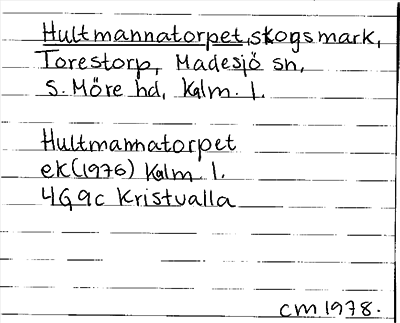 Hultmannatorpet, skogsmark,
Torestorp, Madesjö sn,
S. Möre hd, Kalm. l.
Hultmannatorpet
ek (1976) Kalm l.
4G9c Kristvalla
CM 1978.